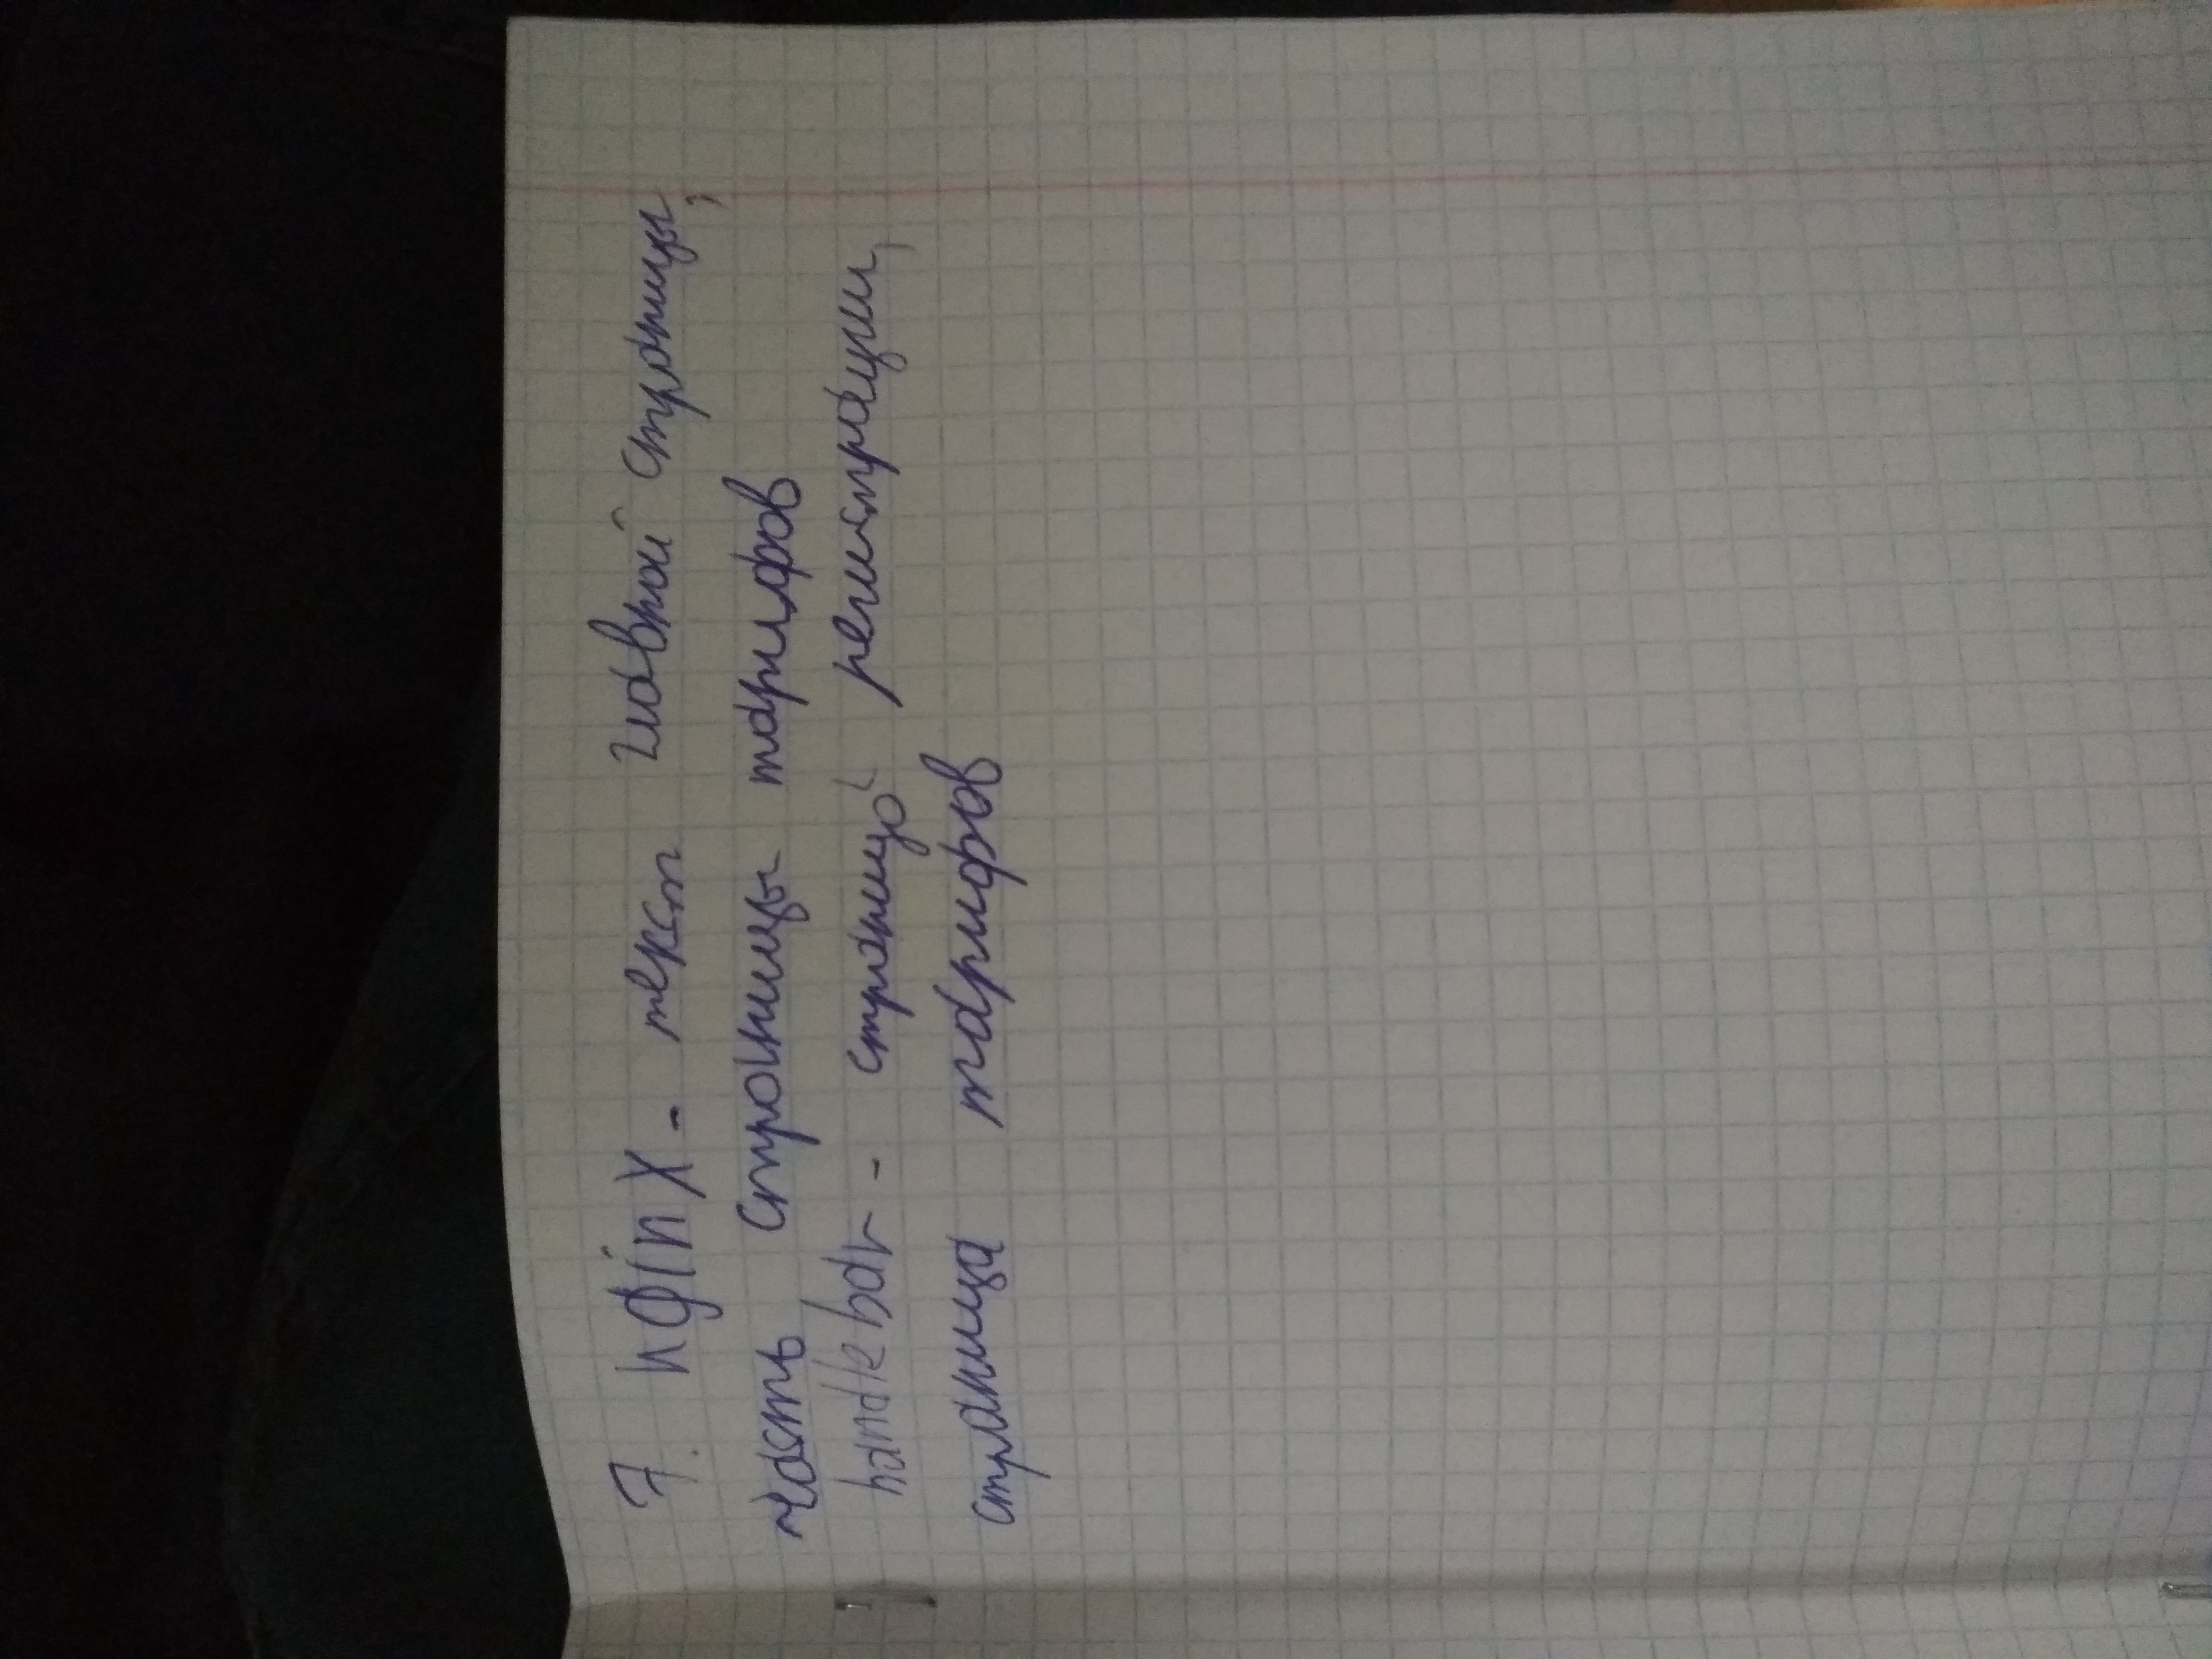 7. nginx - текст главной страницы,
часть страницы тарифов
handlebar - страница регистрации,
страница тарифов